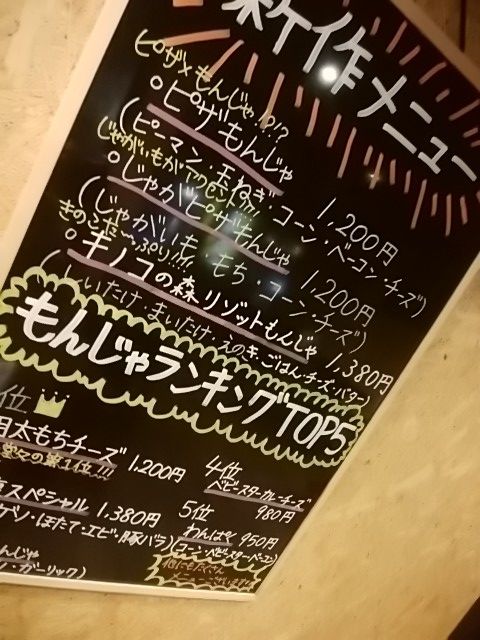 新作メニュー
ピザ×もんじゃ!?!?
○ピザもんじゃ 1,200円
(ピーマン・玉ねぎ・コーン・ベーコン・チーズ)
じゃがいもがアクセント
○じゃがピザもんじゃ 1,200円
(じゃがいも・もち・コーン・チーズ)
きのこた〜っぷり!!
○キノコの森リゾットもんじゃ 1,380円
(しいたけ・まいたけ・えのき・ごはん・チーズ・バター)
もんじゃランキングTOP5
位
太もちチーズ 1,200円
堂々の第1位!!!
スペシャル 1,380円
ゲソ・ほたて・エビ・豚バラ)
んじゃ
・ガーリック)
4位
ベビースターカレーチーズ
980円
5位
わんぱく 950円
(コーン・ベビースター・ベーコン)
他にもたくさん
メニューございます